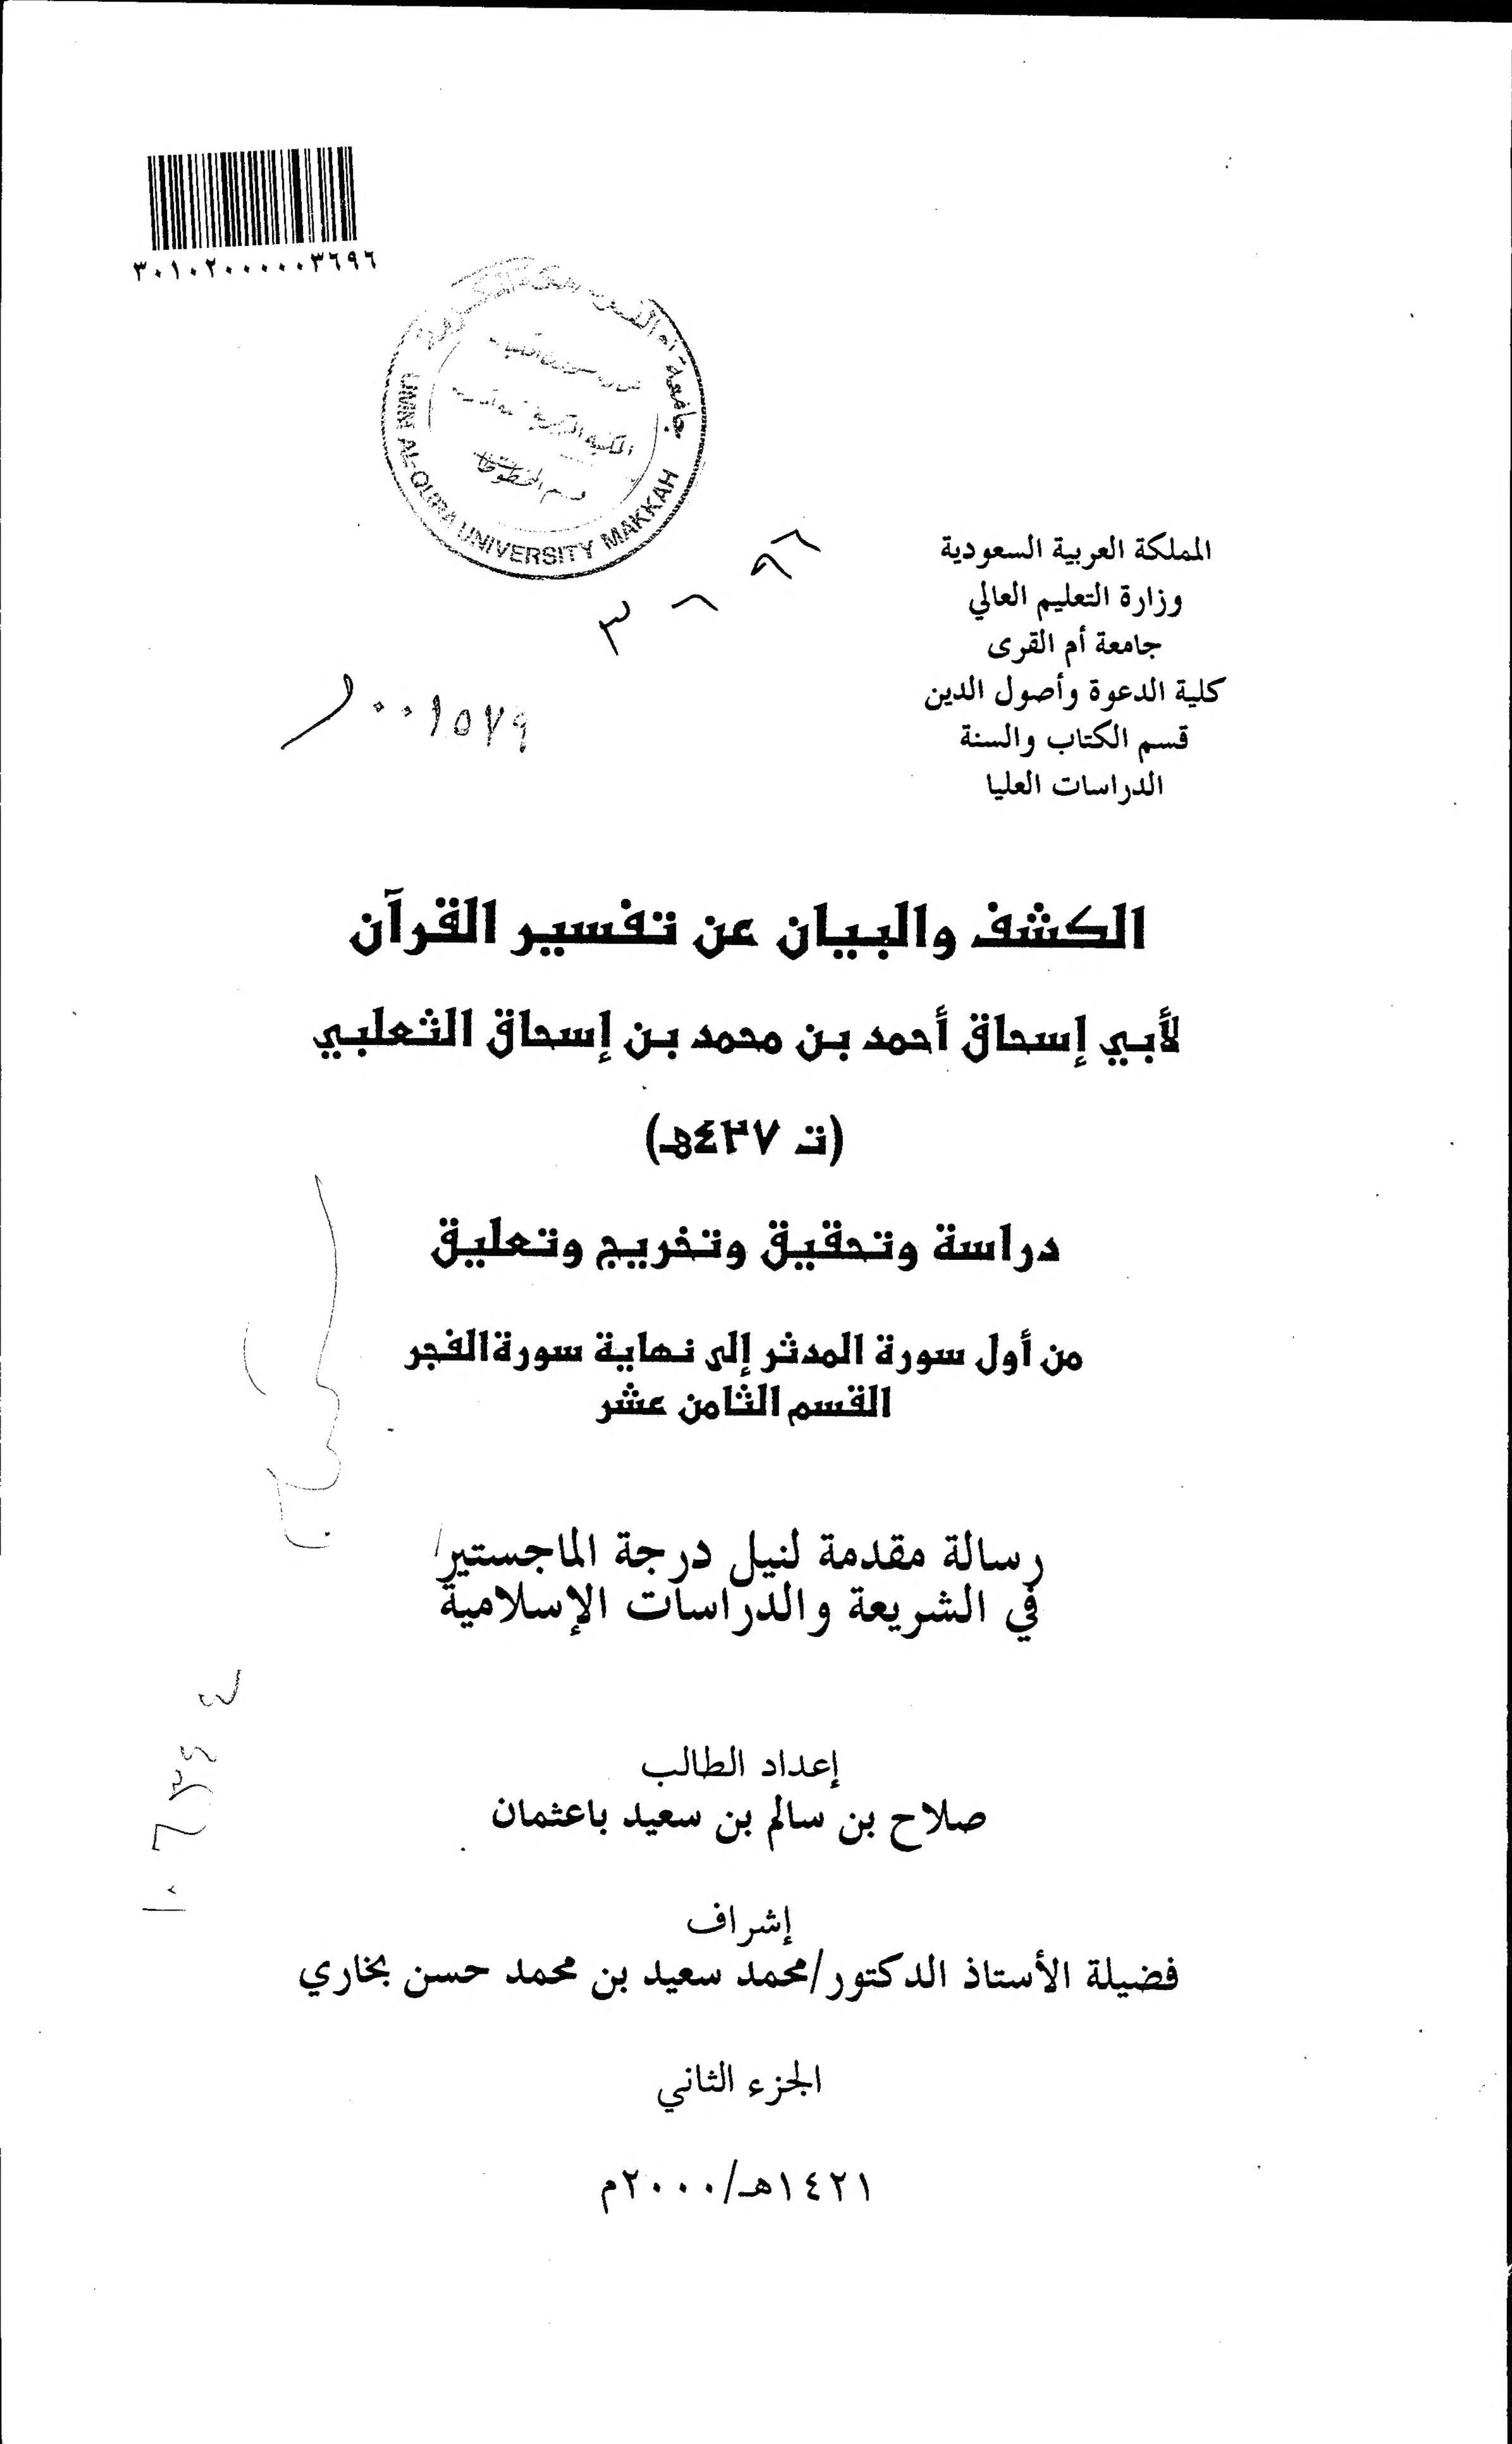 ٣٠١٠٢٠٠٠٠٠٣٦٩٦
جامعة أم القرى
UMM AL-QURA UNIVERSITY MAKKAH
قسم المخطوطات
٣٦٩٦
المملكة العربية السعودية
وزارة التعليم العالي
جامعة أم القرى
كلية الدعوة وأصول الدين
قسم الكتاب والسنة
الدراسات العليا
٠٠١٥٧٩
الكشف والبيان عن تفسير القرآن
لأبي إسحاق أحمد بن محمد بن إسحاق الثعلبي
(ت ٤٢٧هـ)
دراسة وتحقيق وتخريج وتعليق
من أول سورة المدثر إلى نهاية سورةالفجر
القسم الثامن عشر
رسالة مقدمة لنيل درجة الماجستير
في الشريعة والدراسات الإسلامية
إعداد الطالب
صلاح بن سالم بن سعيد باعثمان
إشراف
فضيلة الأستاذ الدكتور/محمد سعيد بن محمد حسن بخاري
الجزء الثاني
١٤٢١هـ/٢٠٠٠م